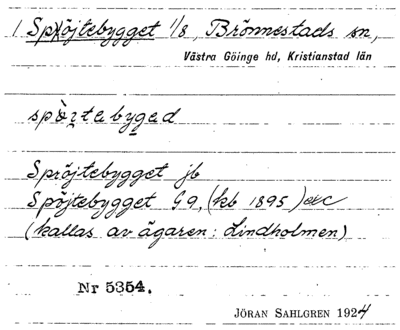 1 Spröjtebygget 1/8, Brönnestads sn,
Västra Göinge hd, Kristianstad län
Spröjtebygget jb
Spöjtebygget G9, (kb 1895) etc
(kallas av ägaren: Lindholmen)
Nr 5354.
JÖRAN SAHLGREN 1924